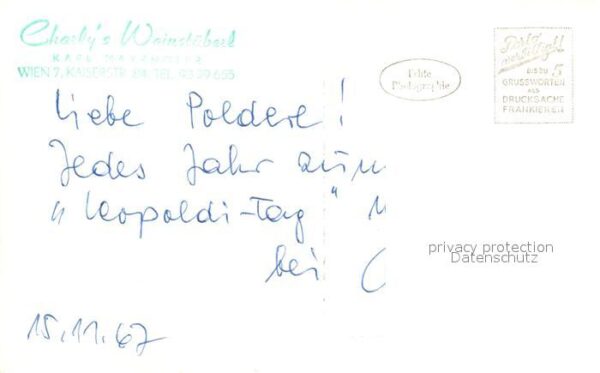 Charly's Weinstüberl
KARL
WIEN 7, KAISERSTR. 24, TEL. 93 39 665
Echte
Photographie
Porto
BIS ZU 5
GRUSSWORTEN
ALS
DRUCKSACHE
FRANKIEREN
Liebe Polderl!
Jedes Jahr zum
"Leopoldi-Tag"
bei C
privacy protection
Datenschutz
15.11.67